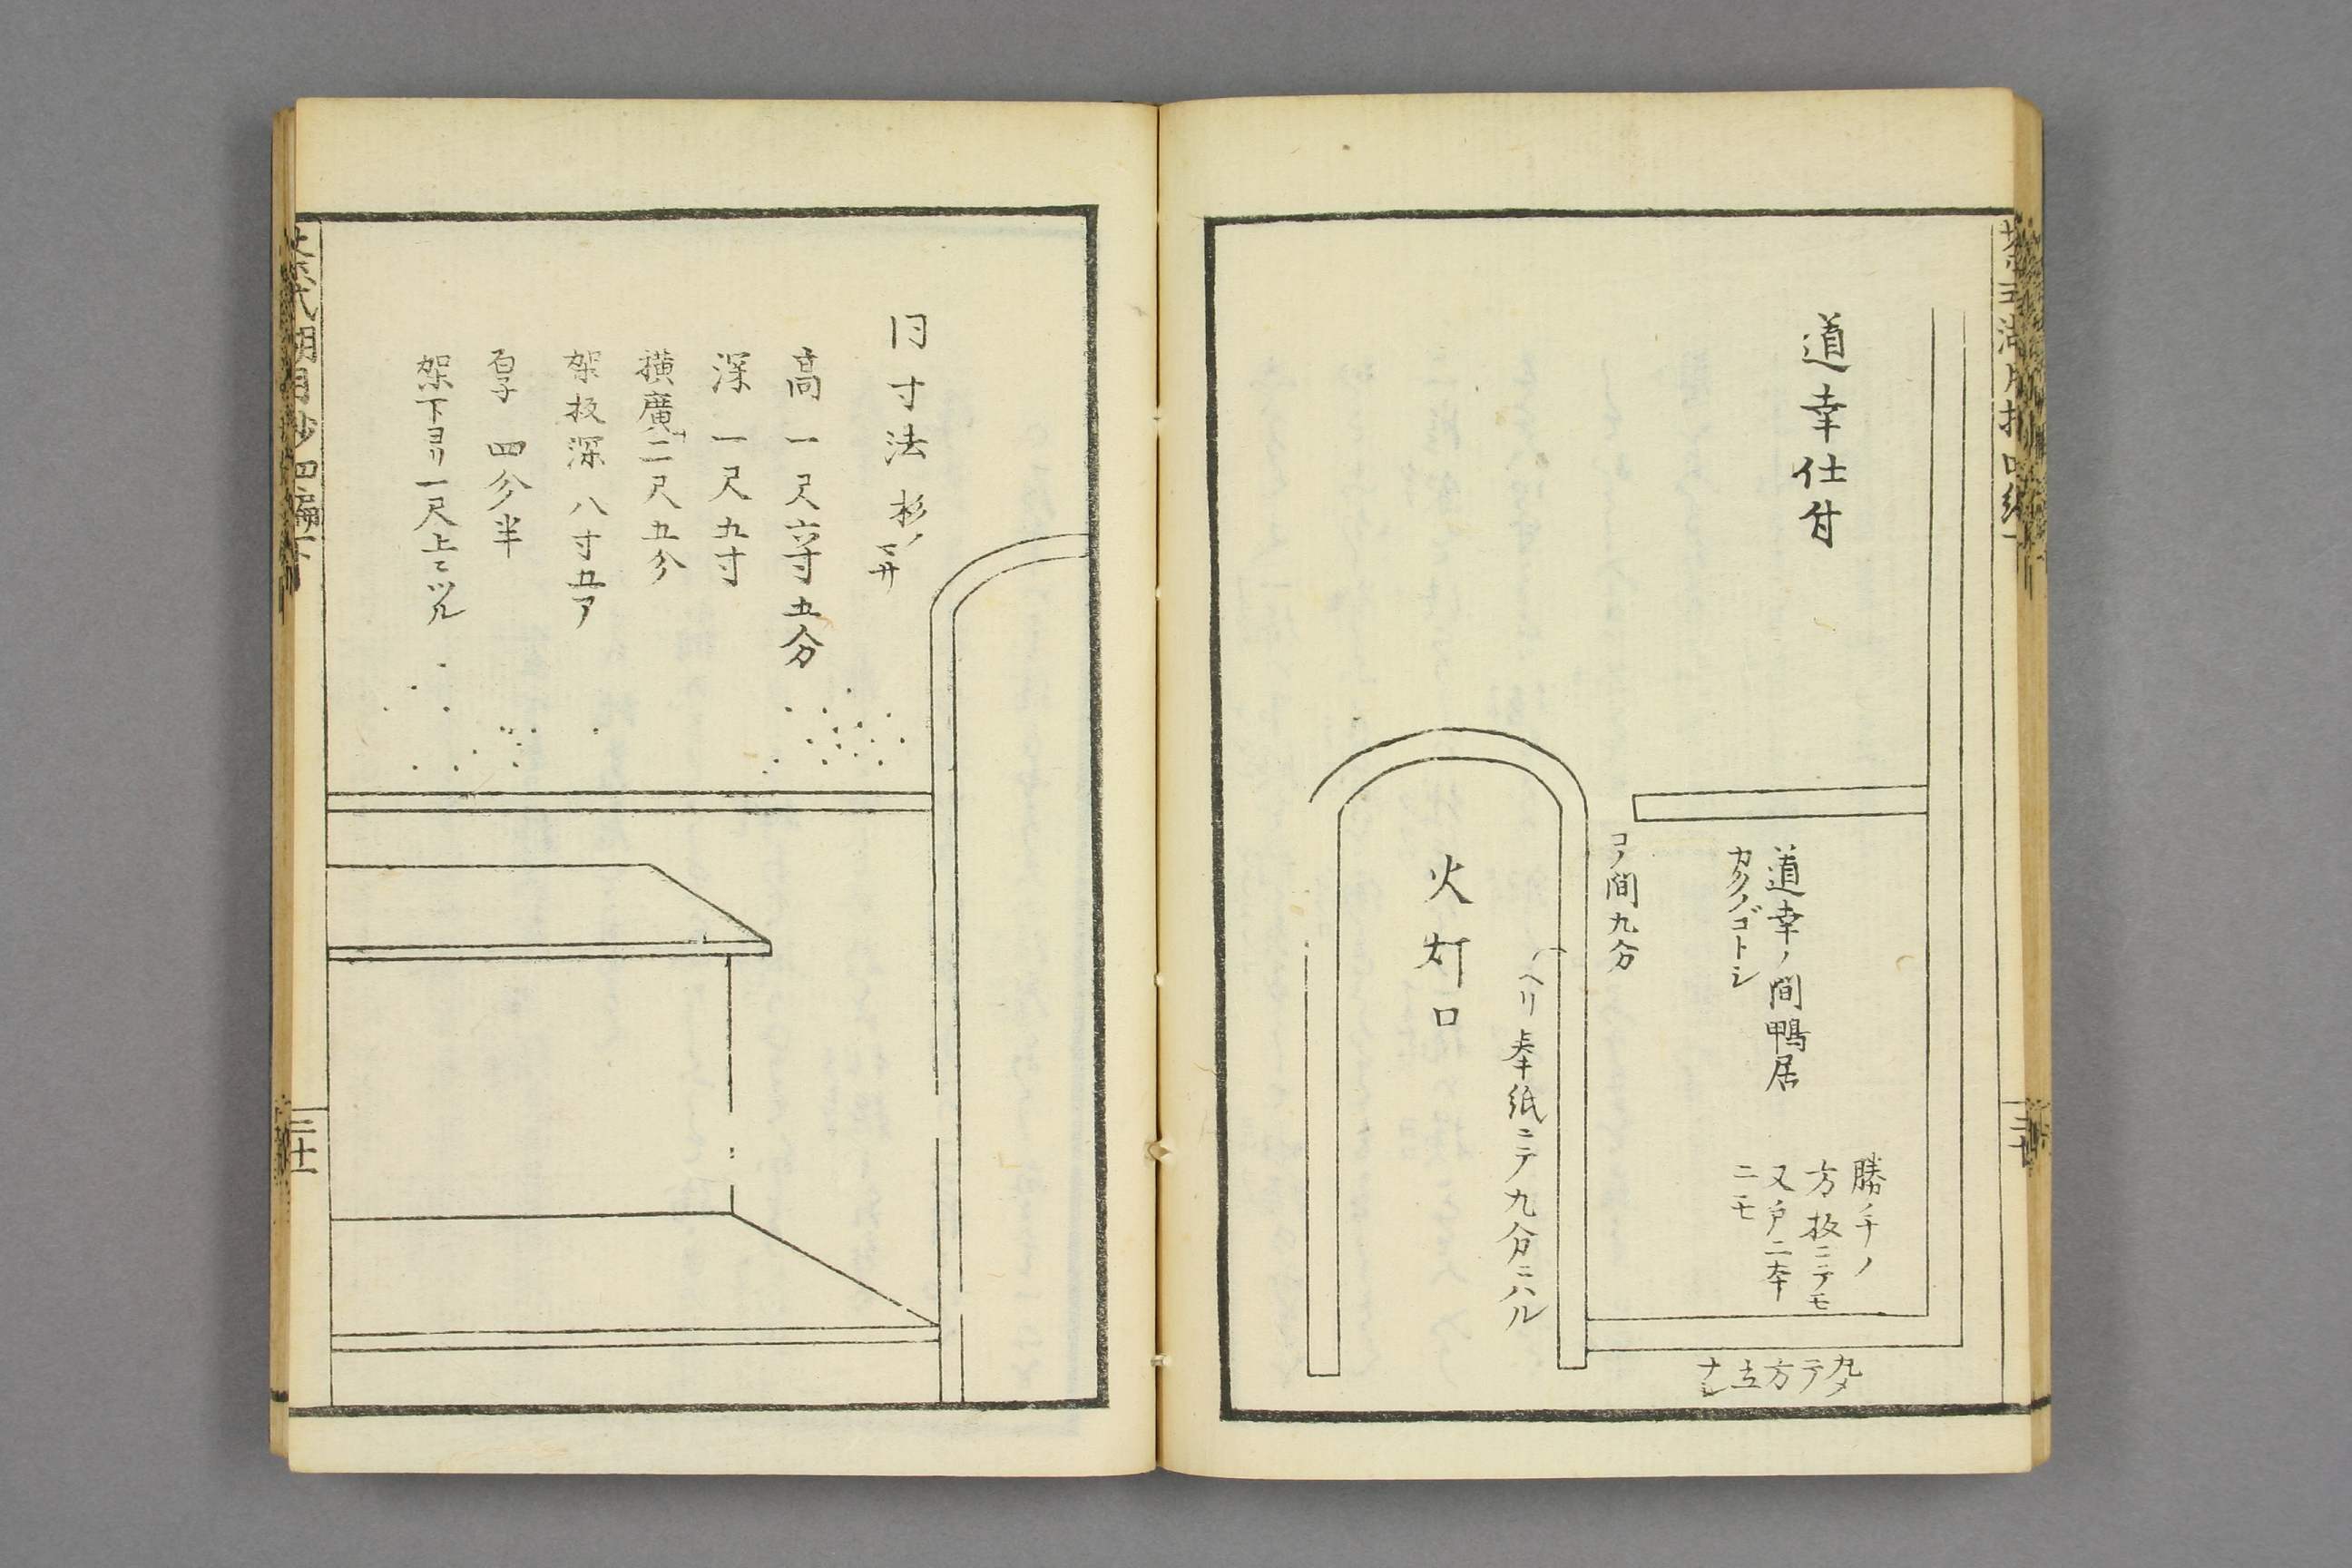 道幸仕付
道幸ノ間鴨居
カクノゴトシ
勝ノ手ノ
方板ニテモ
又戸二本
ニモ
コノ間九分
火灯口
ヘリ奉紙ニテ九分ニハル
方立
同寸法 杉ノ
高 一尺六寸五分
深 一尺五寸
横廣二尺五分
架板深 八寸五
厚 四分半
架下ヨリ一尺上ニツル
茶式湖月抄四編下
三十一